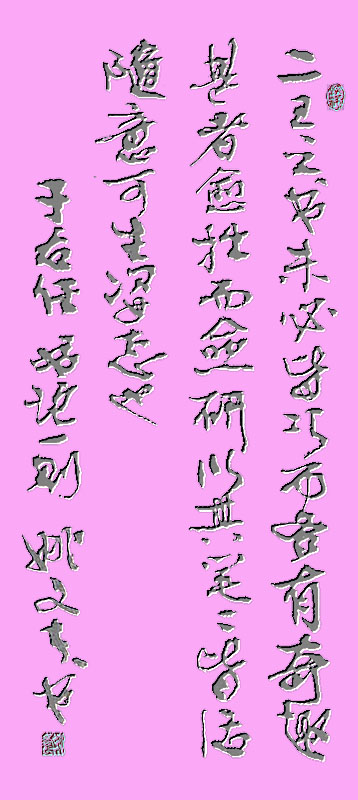 二王之书未必皆巧而各有奇趣
甚者愈拙而愈研以其笔々皆活
随意可生姿态也
于右任书论一则 姚文书